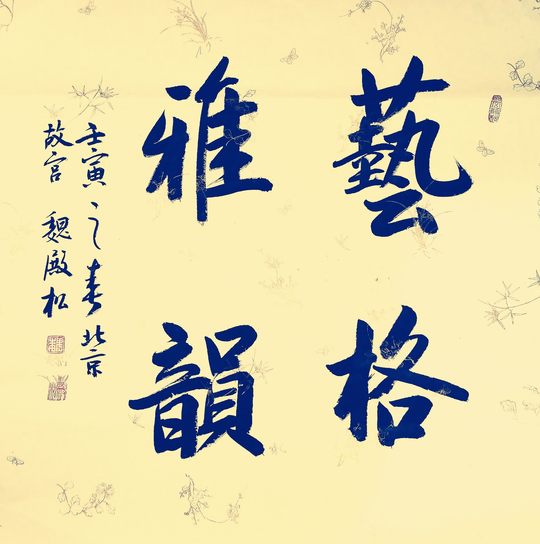 藝格
雅韻
壬寅之春北京
故宫 魏殿松